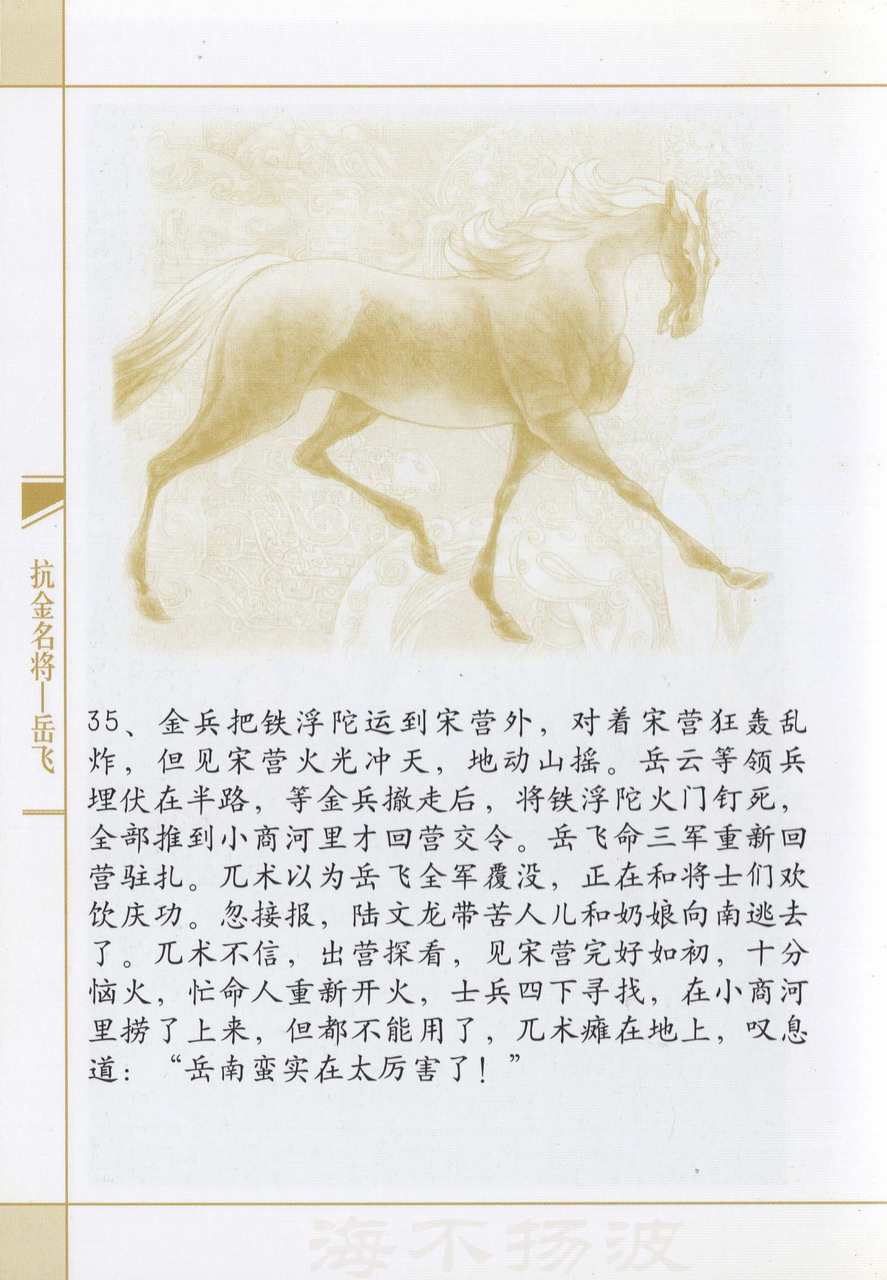 抗金名将—岳飞
35、金兵把铁浮陀运到宋营外，对着宋营狂轰乱
炸，但见宋营火光冲天，地动山摇。岳云等领兵
埋伏在半路，等金兵撤走后，将铁浮陀火门钉死，
全部推到小商河里才回营交令。岳飞命三军重新回
营驻扎。兀术以为岳飞全军覆没，正在和将士们欢
饮庆功。忽接报，陆文龙带苦人儿和奶娘向南逃去
了。兀术不信，出营探看，见宋营完好如初，十分
恼火，忙命人重新开火，士兵四下寻找，在小商河
里捞了上来，但都不能用了，兀术瘫在地上，叹息
道：“岳南蛮实在太厉害了！”
海不扬波